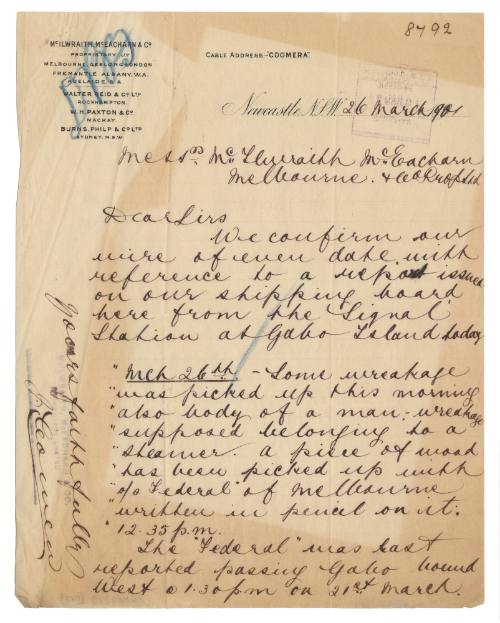 8492
McILWRAITH, McEACHARN & Co
PROPRIETARY LTD
MELBOURNE, GEELONG, LONDON
FREMANTLE, ALBANY, W.A.
ADELAIDE, S.A.
WALTER REID & Co LTD
ROCKHAMPTON.
W. H. PAXTON & Co
MACKAY.
BURNS, PHILP & Co LTD
SYDNEY, N.S.W.
CABLE ADDRESS-"COOMERA"
Newcastle N.S.W. 26 March 1901
Messrs McIlwraith McEacharn
Melbourne. & Co Prop Ltd
Dear Sirs
We confirm our
wire of even date with
reference to a report issued
on our shipping board
here from the Signal
Station at Gabo Island today
"Mch 26th - Some wreakage
"was picked up this morning
"also body of a man - wreakage
"supposed belonging to a
"steamer. a piece of wood
"has been picked up with
"s/s Federal" of Melbourne
"written in pencil on it.
"12.35 p.m.
The "Federal" was last
reported passing Gabo bound
West @ 1.30 pm on 21st March.
Yours faithfully